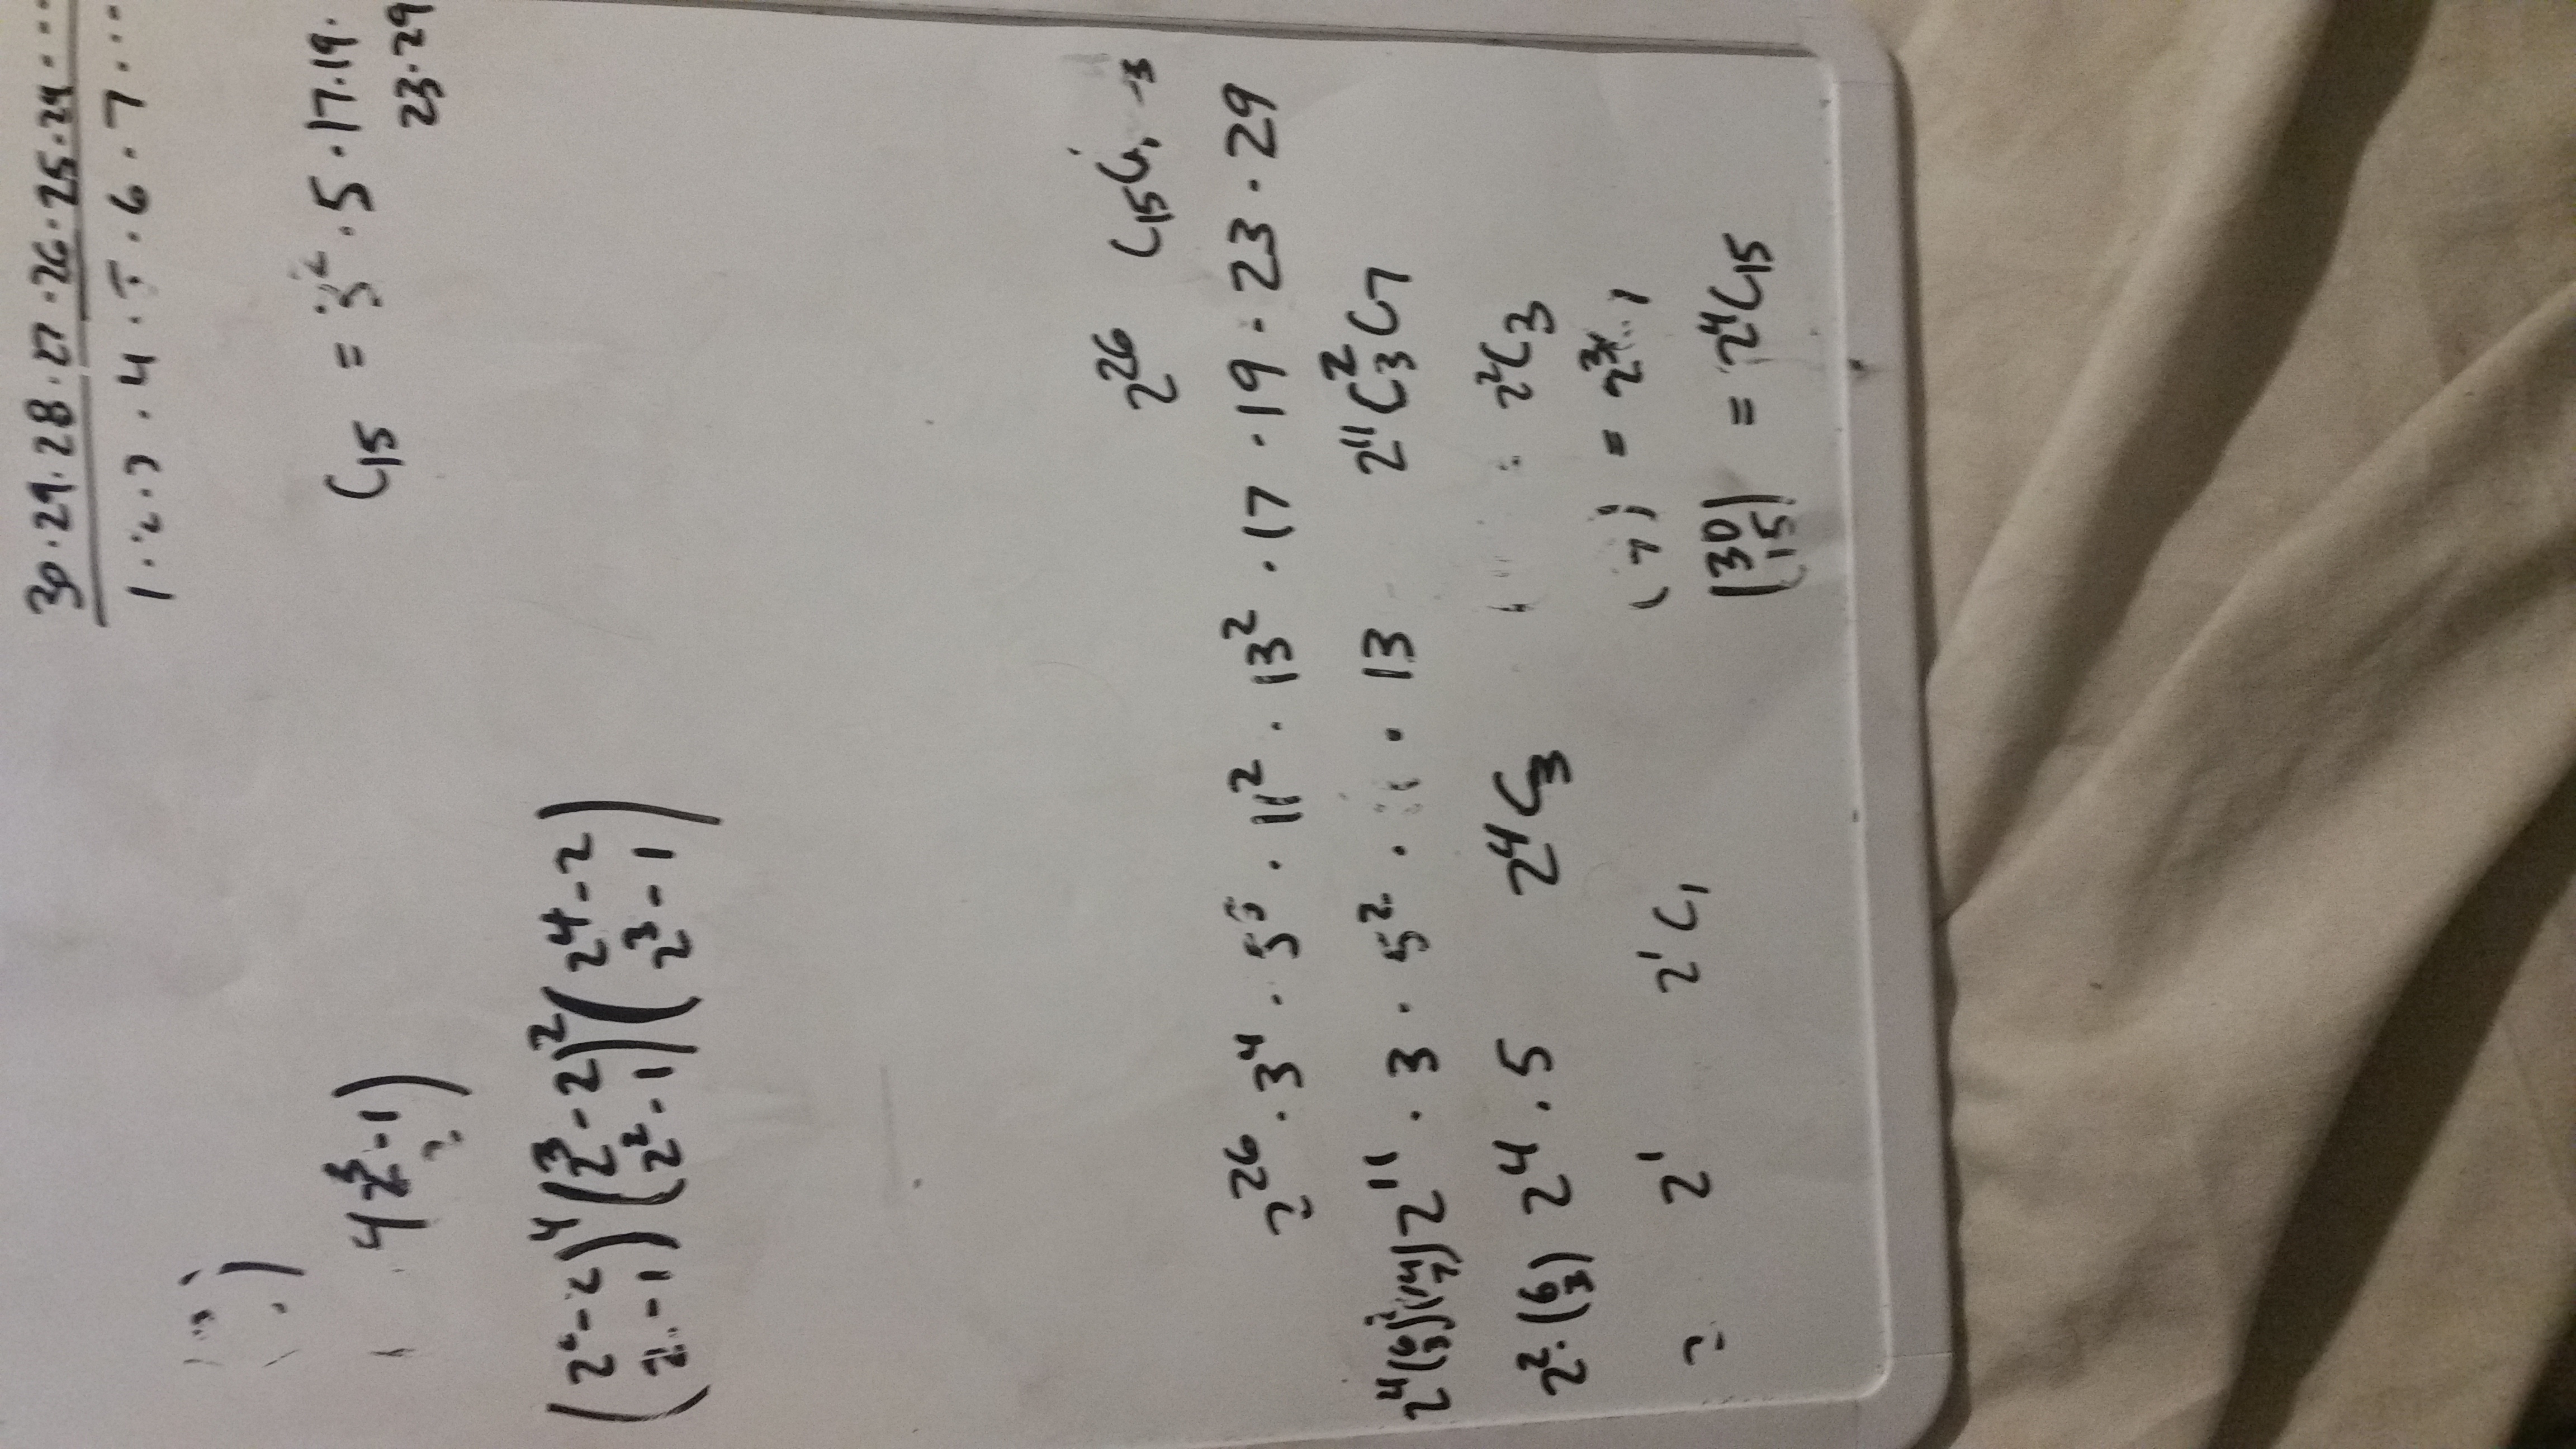 30·29·28·27·26·25·24···
1·2·3·4·5·6·7···
C₁₅ = 3²·5·17·19·
23·29
4 2³-1
2
(2²-2 / 2-1)⁴ (2³-2 / 2²-1)² (2⁴-2 / 2³-1)
2²⁶ C₁₅
2²⁶ · 3⁴ · 5⁵ · 11² · 13² · 17 · 19 · 23 · 29
2⁴(6 / 3)²(14 / 7) 2¹¹ · 3 · 5² · 11 · 13 2¹¹ C₃² C₇
2² · (6 / 3) 2⁴ · 5 2⁴ C₃ = 2² C₃
2 2¹ 2¹ C₁ = 2³
(30 / 15) = 2⁴ C₁₅